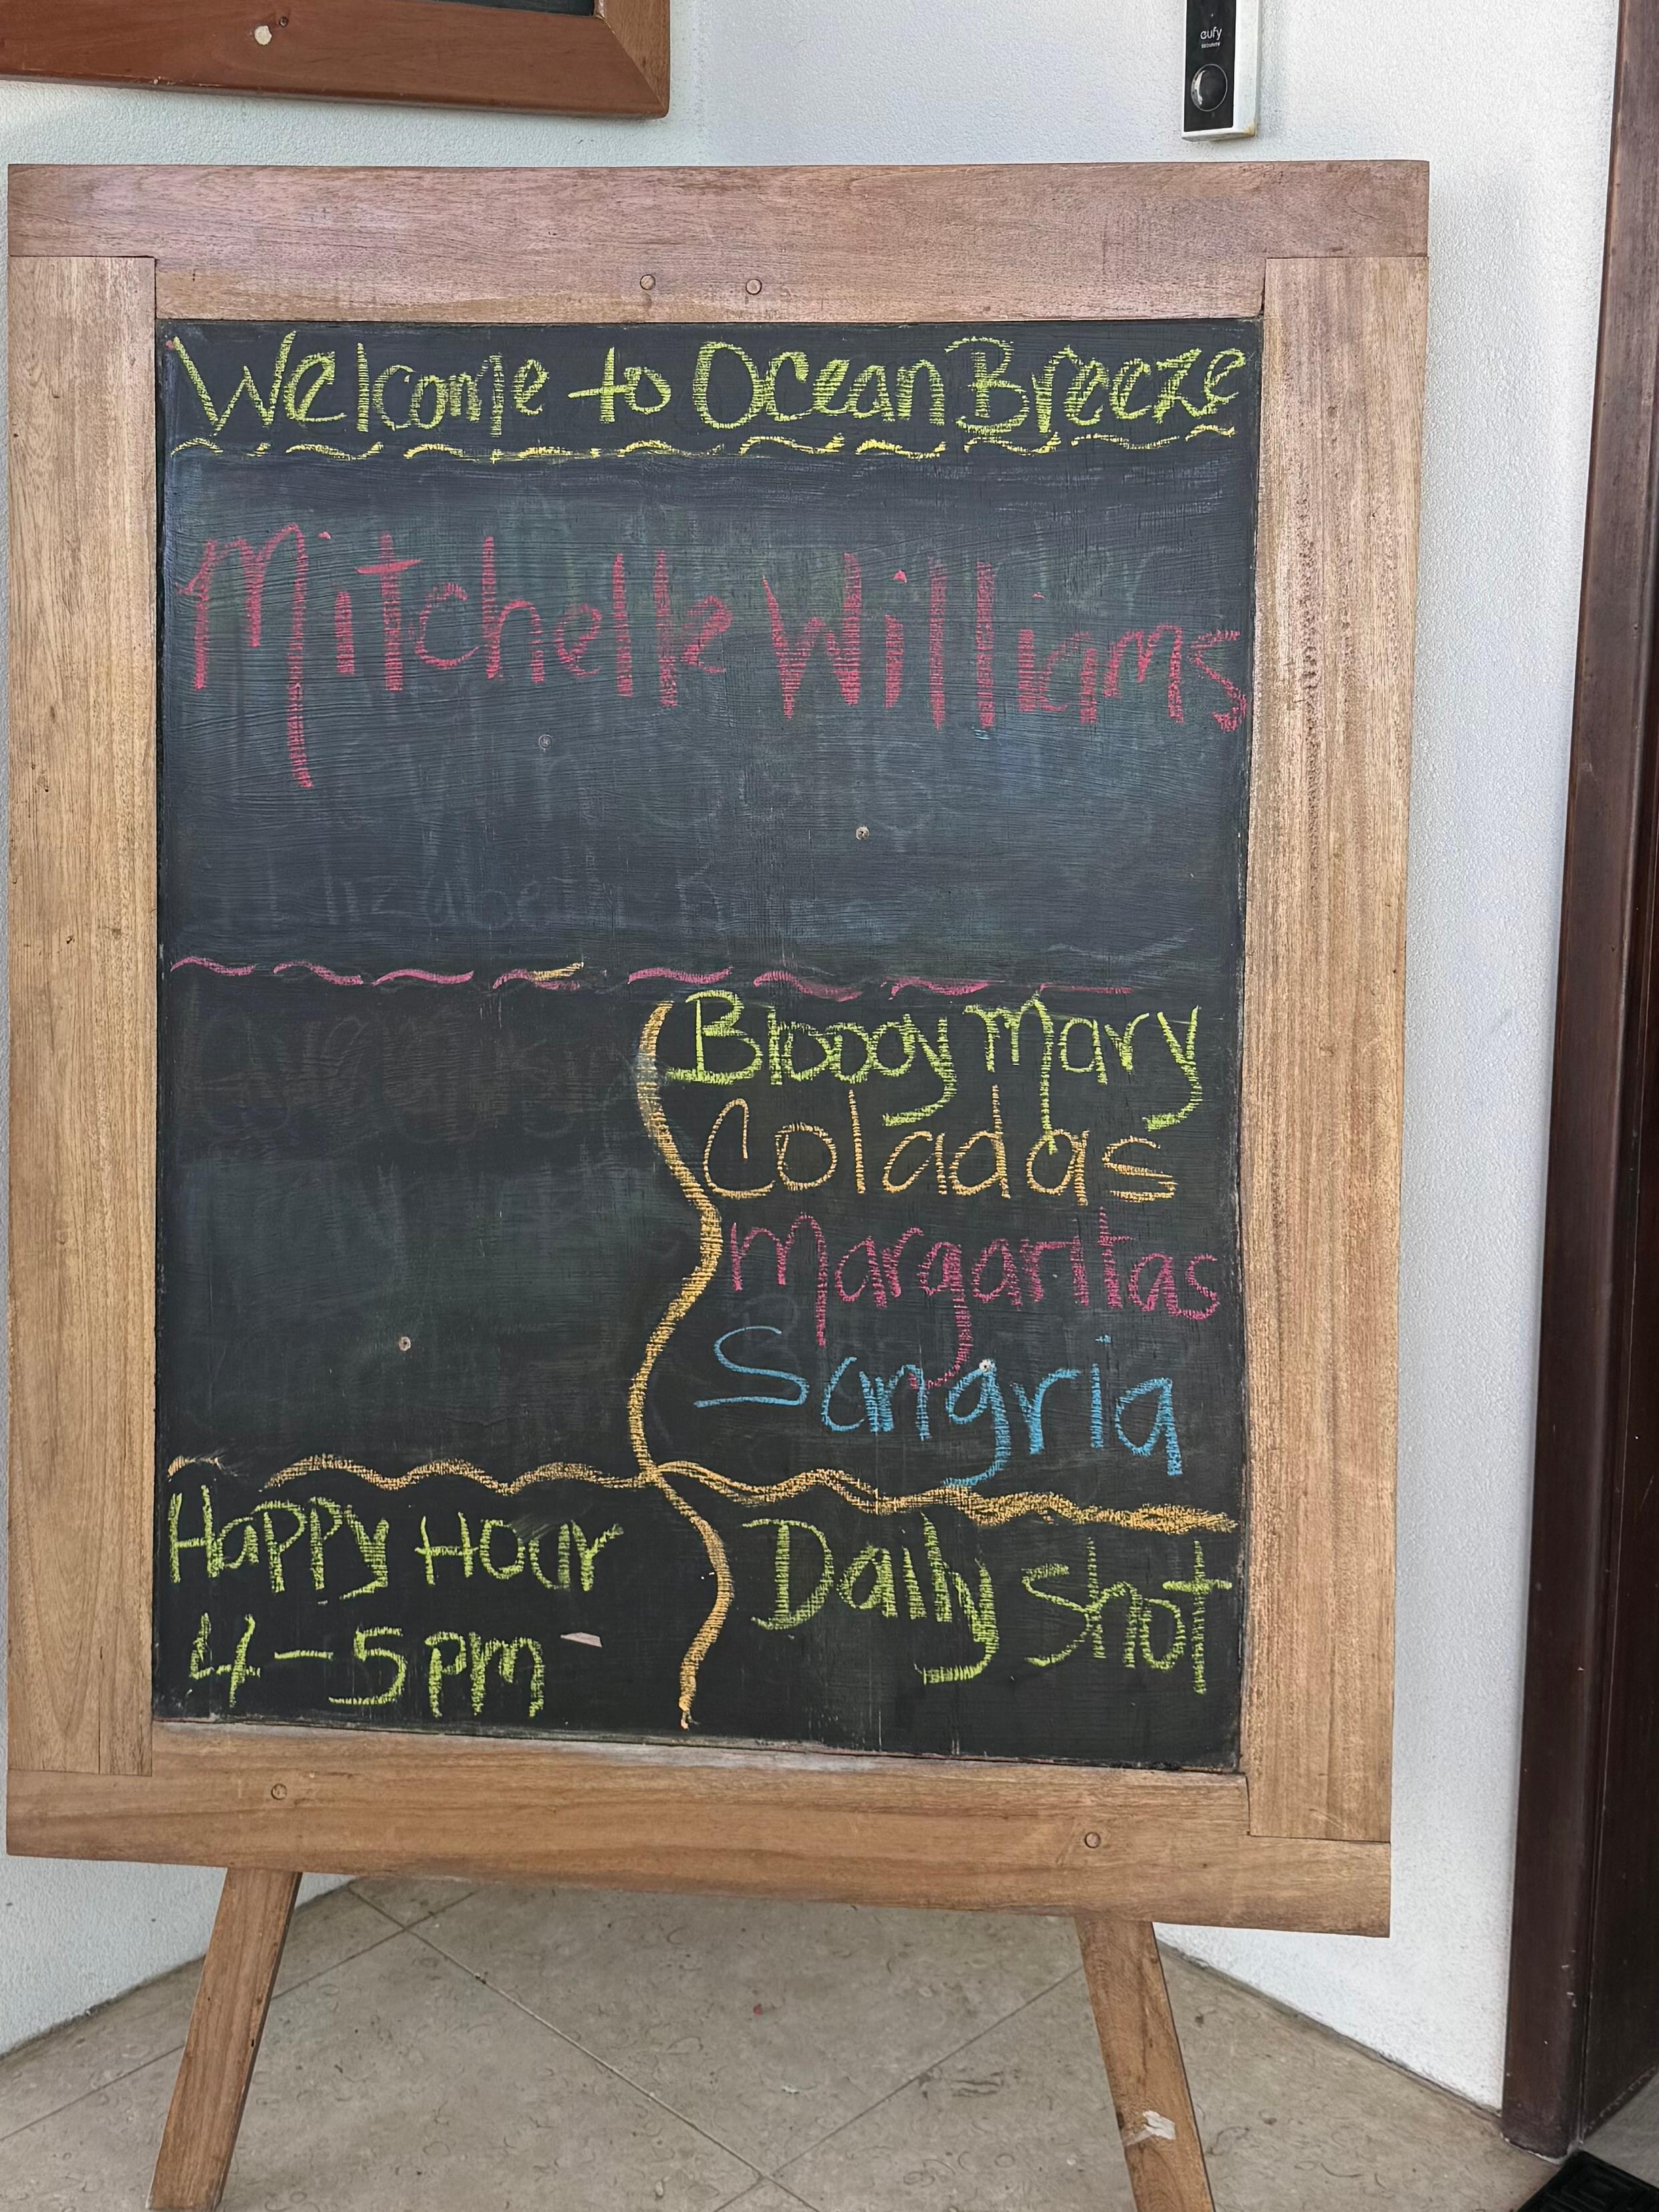 eufy
SECURITY
Welcome to Ocean Breeze
Mitchelle Williams
Bloody Mary
Coladas
Margaritas
Sangria
Happy Hour
4-5pm
Daily Shot